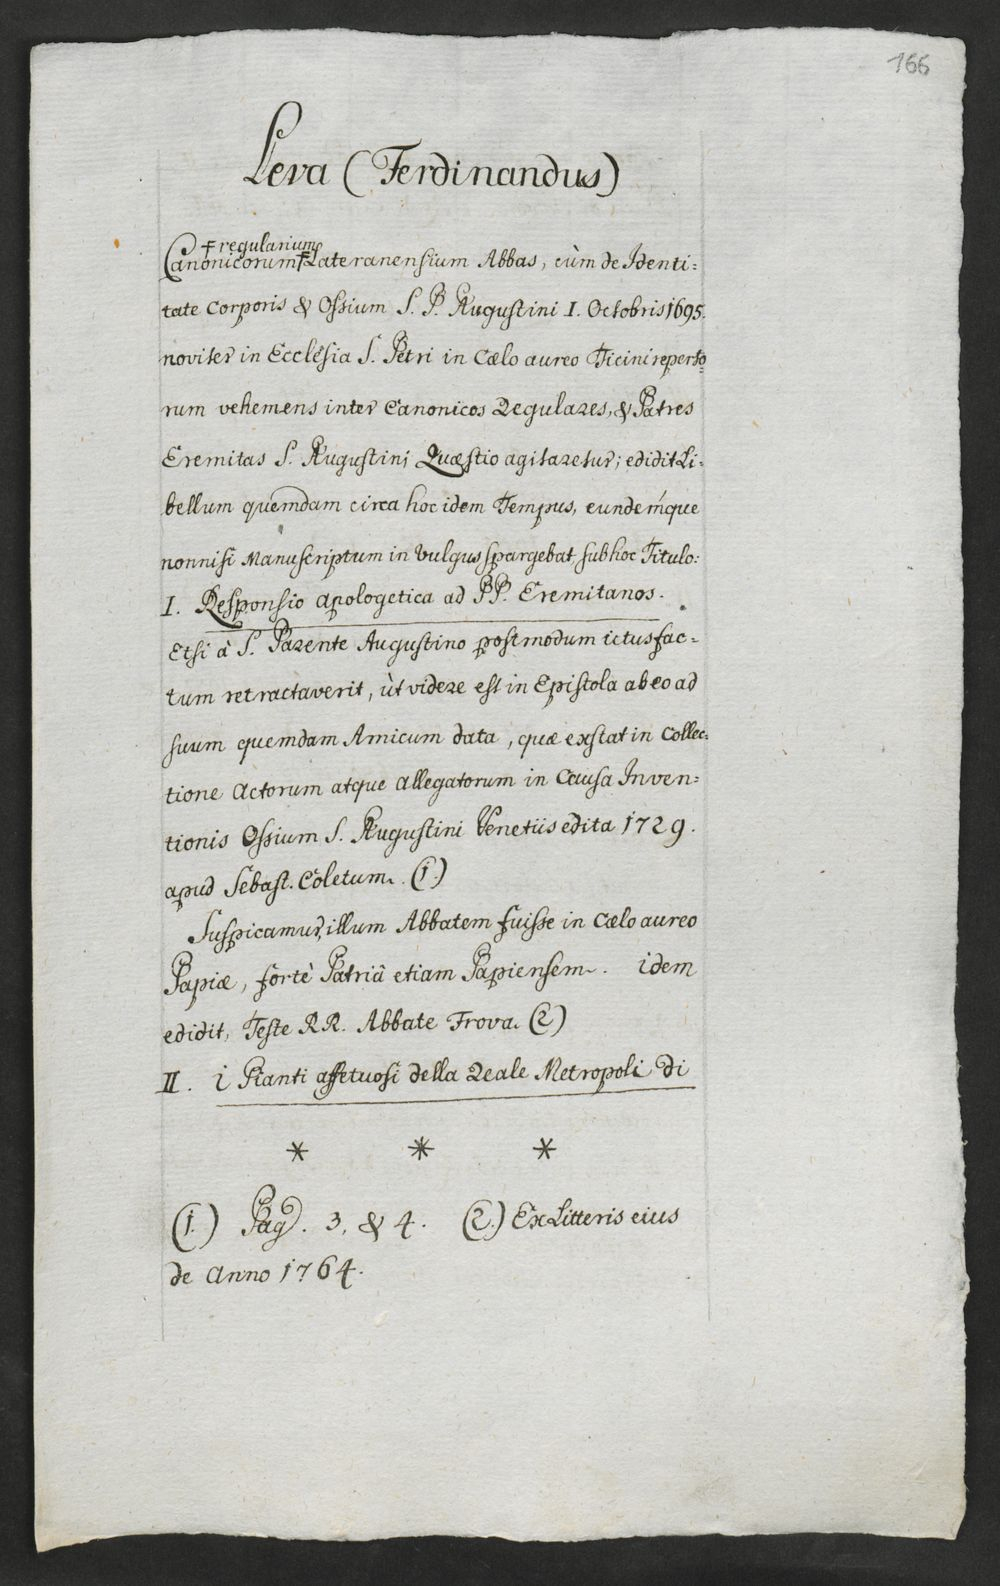 166
Leva (Ferdinandus)
Ꞙ regularium
Canonicorum Ꞙ Lateranensium Abbas, cùm de Identi:
tate Corporis & Ossium S. P. Augustini I. Octobris 1695.
noviter in Ecclesia S. Petri in Cælo aureo Ticini reperto:
rum vehemens inter Canonicos Regulares, & Patres
Eremitas S. Augustini Quæstio agitaretur; edidit Li:
bellum quemdam circa hoc idem Tempus, eundemque
nonnisi Manuscriptum in vulgus spargebat, sub hoc Titulo:
I. Responsio apologetica ad PP. Eremitanos.
Etsi à S. Parente Augustino postmodum ictus fac-
tum retractaverit, ùt videre est in Epistola ab eo ad
suum quemdam Amicum data, quæ exstat in Collec:
tione Actorum atque allegatorum in Causa Inven:
tionis Ossium S. Augustini Venetiis edita 1729.
apud Sebast. Coletum. (1.)
Suspicamur, illum Abbatem fuisse in Cælo aureo
Papiæ, fortè Patriâ etiam Papiensem. idem
edidit, Teste RR. Abbate Frova. (2)
II. i Pianti affetuosi della Reale Metropoli di
* * *
(1.) Pag. 3, & 4. (2.) Ex Litteris eius
de Anno 1764.